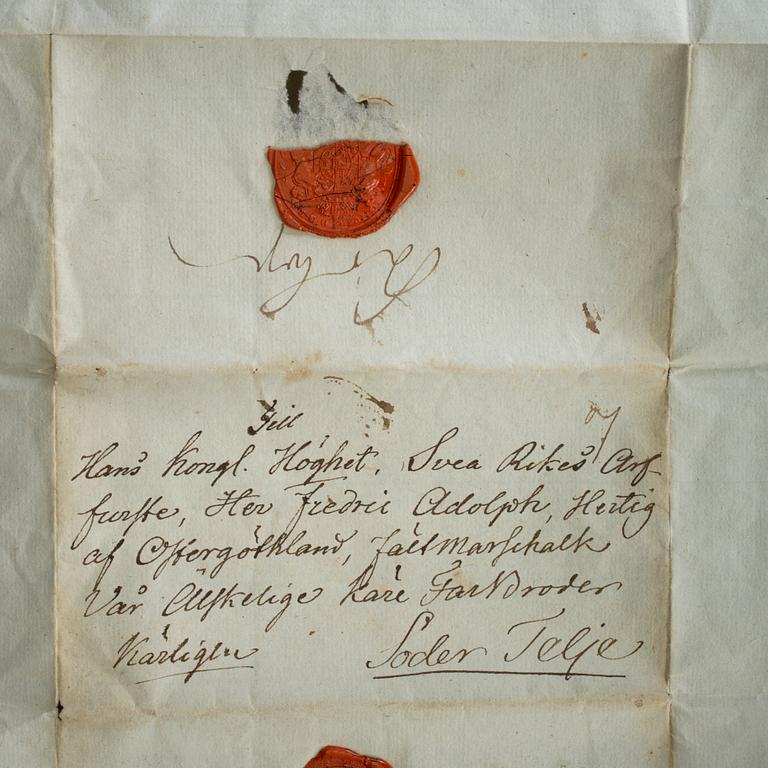 Till
Hans Kongl. Höghet, Svea Rikes Arf-
furste, Her Fredric Adolph, Hertig
af Östergöthland, fältMarschalk
Vår Älskelige käre Farbroder
Kärligen Söder Telje